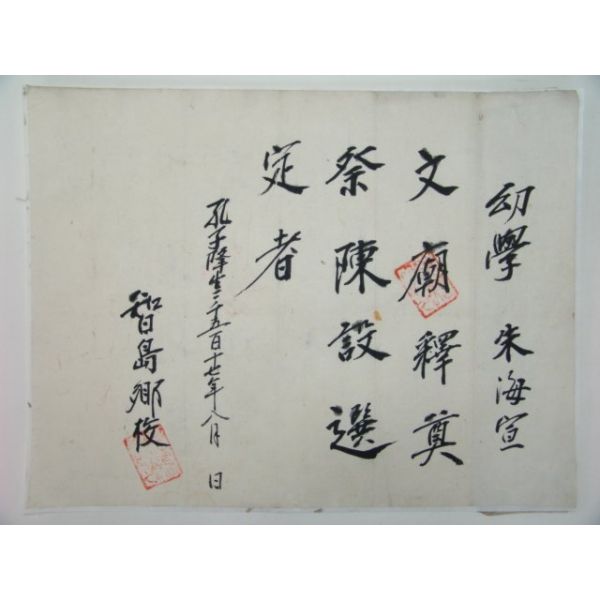 幼學 朱海宣
文廟釋奠
祭陳設選
定者
孔子降生二千五百十七年八月 日
智島鄉校